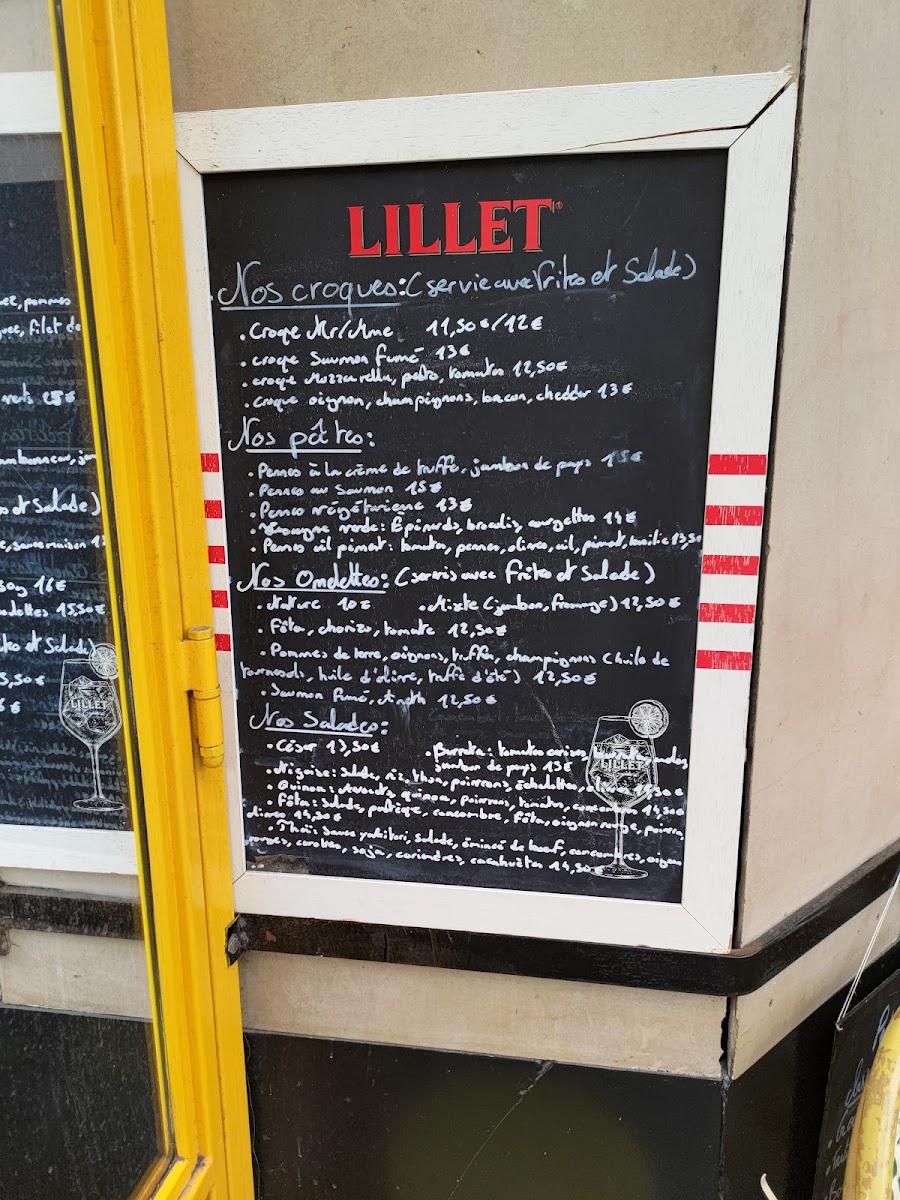 LILLET
Nos croques: (servie avec frites et Salade)
. Croque Mr/Mme 11,50€/12€
. croque Saumon fumé 13€
. croque Mozzarella, pesto, tomates 12,50€
. Croque oignon, champignons, bacon, cheddar 13€
Nos pâtes:
. Pennes à la crème de truffe, jambon de pays 15€
. Pennes au Saumon 15€
. Pennes végétarienne 13€
verde: Épinards, brocolis, courgettes 14€
. Pennes ail piment: tomates, pennes, olives, ail, piment, basilic 13,50
Nos Omelettes: (servis avec frites et Salade)
. Nature 10€ . Mixte (jambon, fromage) 12,50€
. Fêta, chorizo, tomate 12,50€
. Pommes de terre, oignons, truffe, champignons (huile de
tournesols, huile d'olive, truffe d'été) 12,50€
. Saumon Fumé, Aneth 12,50€
Nos Salades:
. César 13,50€ . Burrata: tomates cerises,
jambon de pays 13€
. Niçoise: Salade, riz, thon, poivrons, échalottes,
. Quinoa: Avocats, quinoa, poivrons, tomates, 14,50€
. Fêta: Salade, pastèque, concombre, fêta, oignon rouge, poivron,
olives 14,50€
. Thaï: sauce yakitori, salade, émincé de boeuf, concombres, oignons
rouges, carottes, soja, coriandres, cacahuètes 14,50€
LILLET
verts 25€
et Salade)
16€
15,50€
et Salade)
LILLET